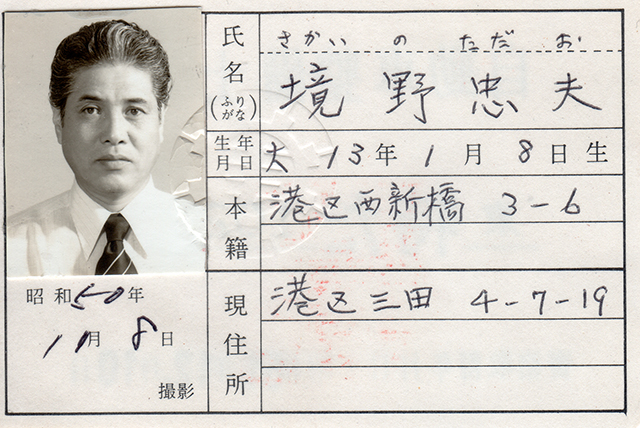 氏名(ふりがな) さかいの ただお
境野忠夫
生年月日 大13年1月8日生
本籍 港区西新橋 3-6
現住所 港区三田 4-7-19
昭和50年
11月8日
撮影